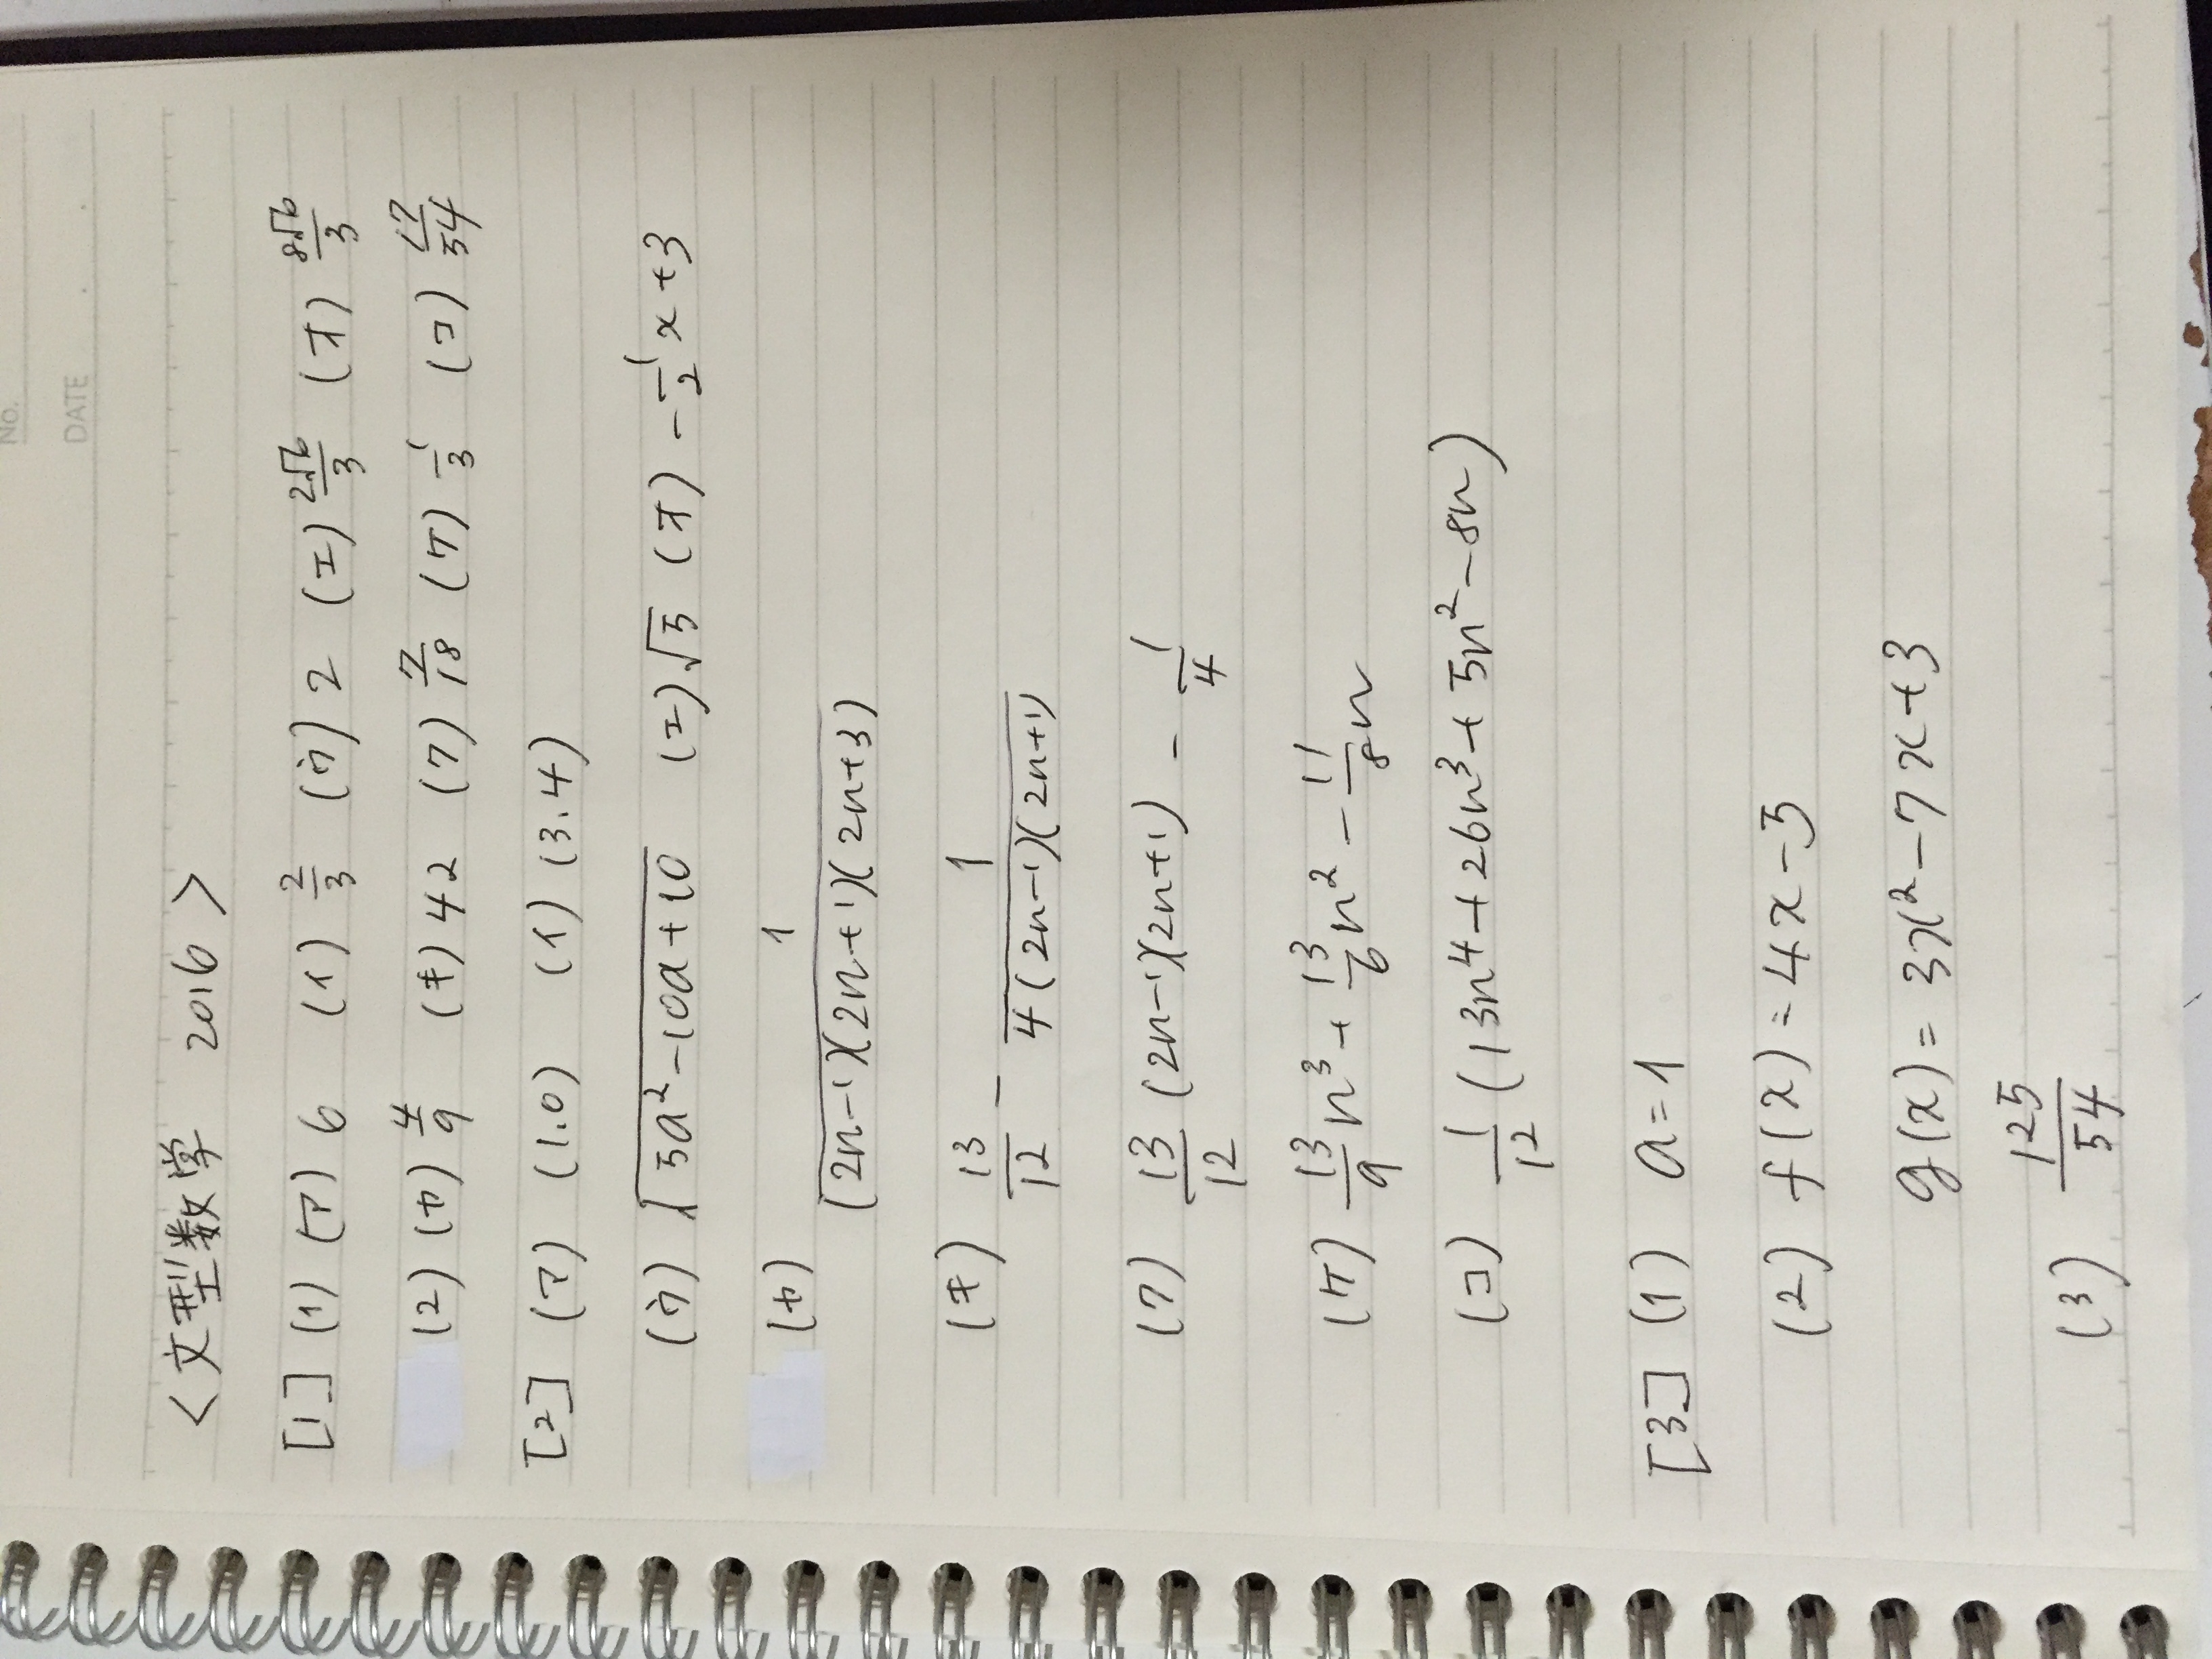 No.
DATE
<文型数学 2016>
[1] (1) (ア) 6 (イ) 2/3 (ウ) 2 (エ) 2√6/3 (オ) 8√6/3
(2) (カ) 4/9 (キ) 42 (ク) 7/18 (ケ) 1/3 (コ) 17/54
[2] (ア) (1.0) (イ) (3.4)
(ウ) √(5a²-10a+10) (エ) √5 (オ) -1/2x+3
(カ) 1/((2n-1)(2n+1)(2n+3))
(キ) 13/12 - 1/(4(2n-1)(2n+1))
(ク) 13/12 (2n-1)(2n+1) - 1/4
(ケ) 13/9n³+13/6n²-11/8n
(コ) 1/12(13n⁴+26n³+5n²-8n)
[3] (1) a=1
(2) f(x)=4x-5
g(x)=3x²-7x+3
(3) 125/54